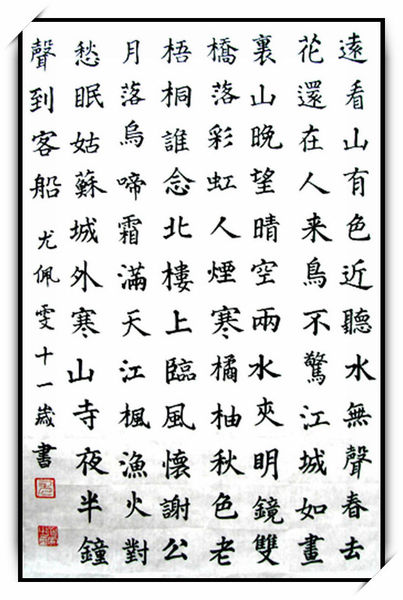 遠看山有色近聽水無聲春去
花還在人来鳥不驚江城如畫
裏山晚望晴空兩水夾明鏡雙
橋落彩虹人煙寒橘柚秋色老
梧桐誰念北樓上臨風懷謝公
月落烏啼霜滿天江楓漁火對
愁眠姑蘇城外寒山寺夜半鐘
聲到客船 尤佩雯十一歲書